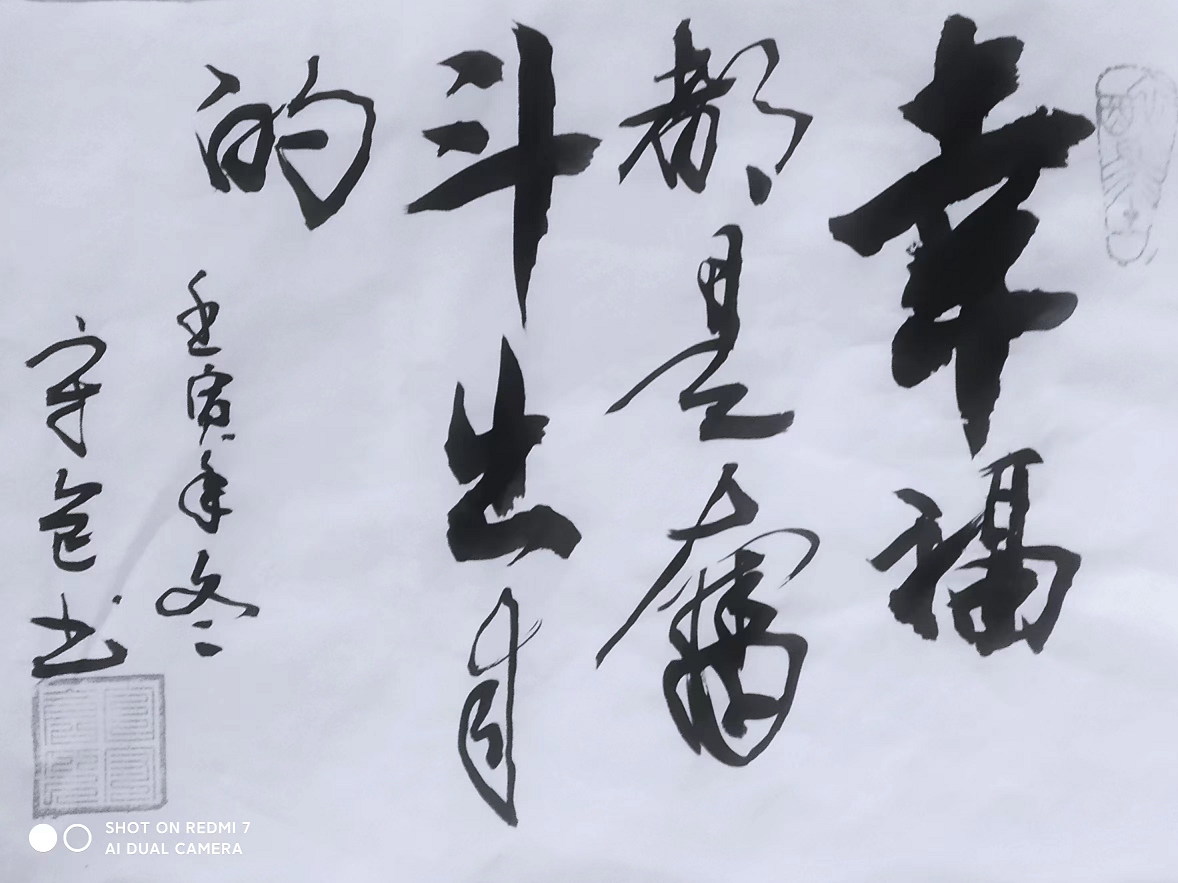 幸福
都是奮
斗出来
的
壬寅年冬
守 书
SHOT ON REDMI 7
AI DUAL CAMERA